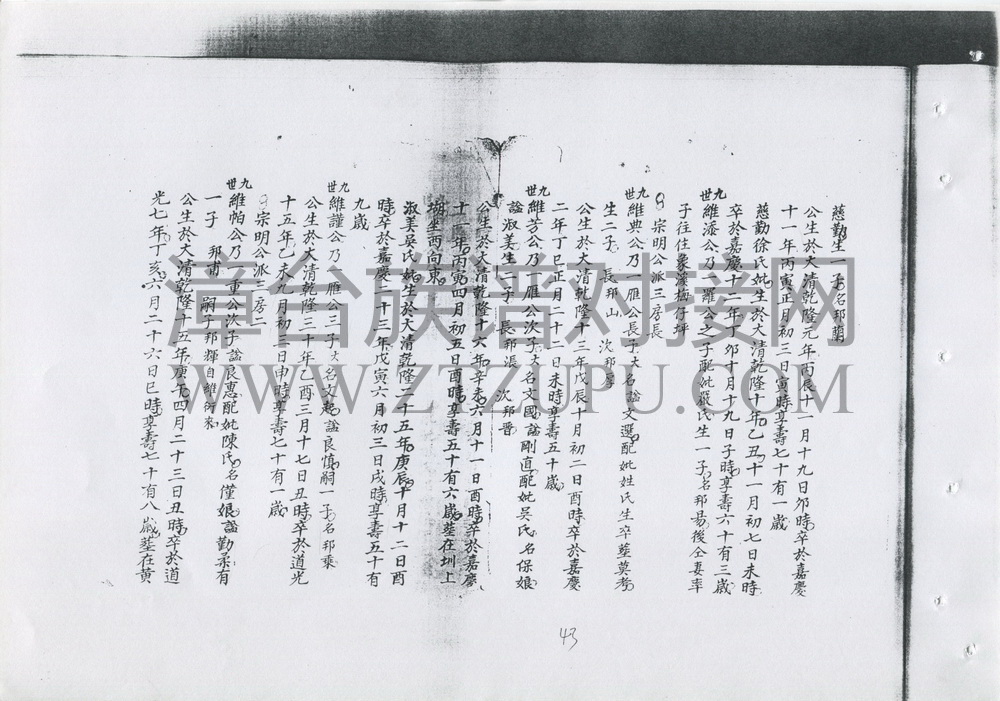 慈勤生一子名邦蘭
公生於大清乾隆元年丙辰十一月十九日夘時卒於嘉慶
十一年丙寅正月初三日寅時享壽七十有一歲
慈勤徐氏妣生於大清乾隆十年乙丑十一月初七日未時
卒於嘉慶十二年丁夘十月十九日子時享壽六十有三歲
九世維 公乃一羅公之子配妣 氏生一子名邦易後仝妻率
子往住象溪 仔坪
宗明公派三房長
九世維典公乃一雁公長子大名 諡文選配妣姓氏生卒塟莫考
生二子 長邦山 次邦
公生於大清乾隆十三年戊辰十月初二日酉時卒於嘉慶
二年丁巳正月二十二日未時享壽五十歲
九世維芳公乃一雁公次子大名文國諡剛直配妣吳氏名保娘
諡淑美生二子 長邦漲 次邦晉
公生於大清乾隆十六年辛未六月十一日酉時卒於嘉慶
十一年丙寅四月初五日酉時享壽五十有六歲塟在圳上
坐西向東
淑美吳氏妣生於大清乾隆二十五年庚辰十月十二日酉
時卒於嘉慶二十三年戊寅六月初三日戌時享壽五十有
九歲
九世維謹公乃一雁公三子大名文起諡良慎嗣一子名邦乘
公生於大清乾隆三十年乙酉三月十七日丑時卒於道光
十五年乙未九月初三日申時享壽七十有一歲
宗明公派三房二
九世維帕公乃一重公次子諡良惠配妣陳氏名僅娘諡勤柔有
一子 邦甫 嗣子邦輝自維衍來
公生於大清乾隆十五年庚午四月二十三日丑時卒於道
光七年丁亥六月二十六日巳時享壽七十有八歲塟在黄
43
漳台族譜对接网
WWW.ZTZUPU.COM